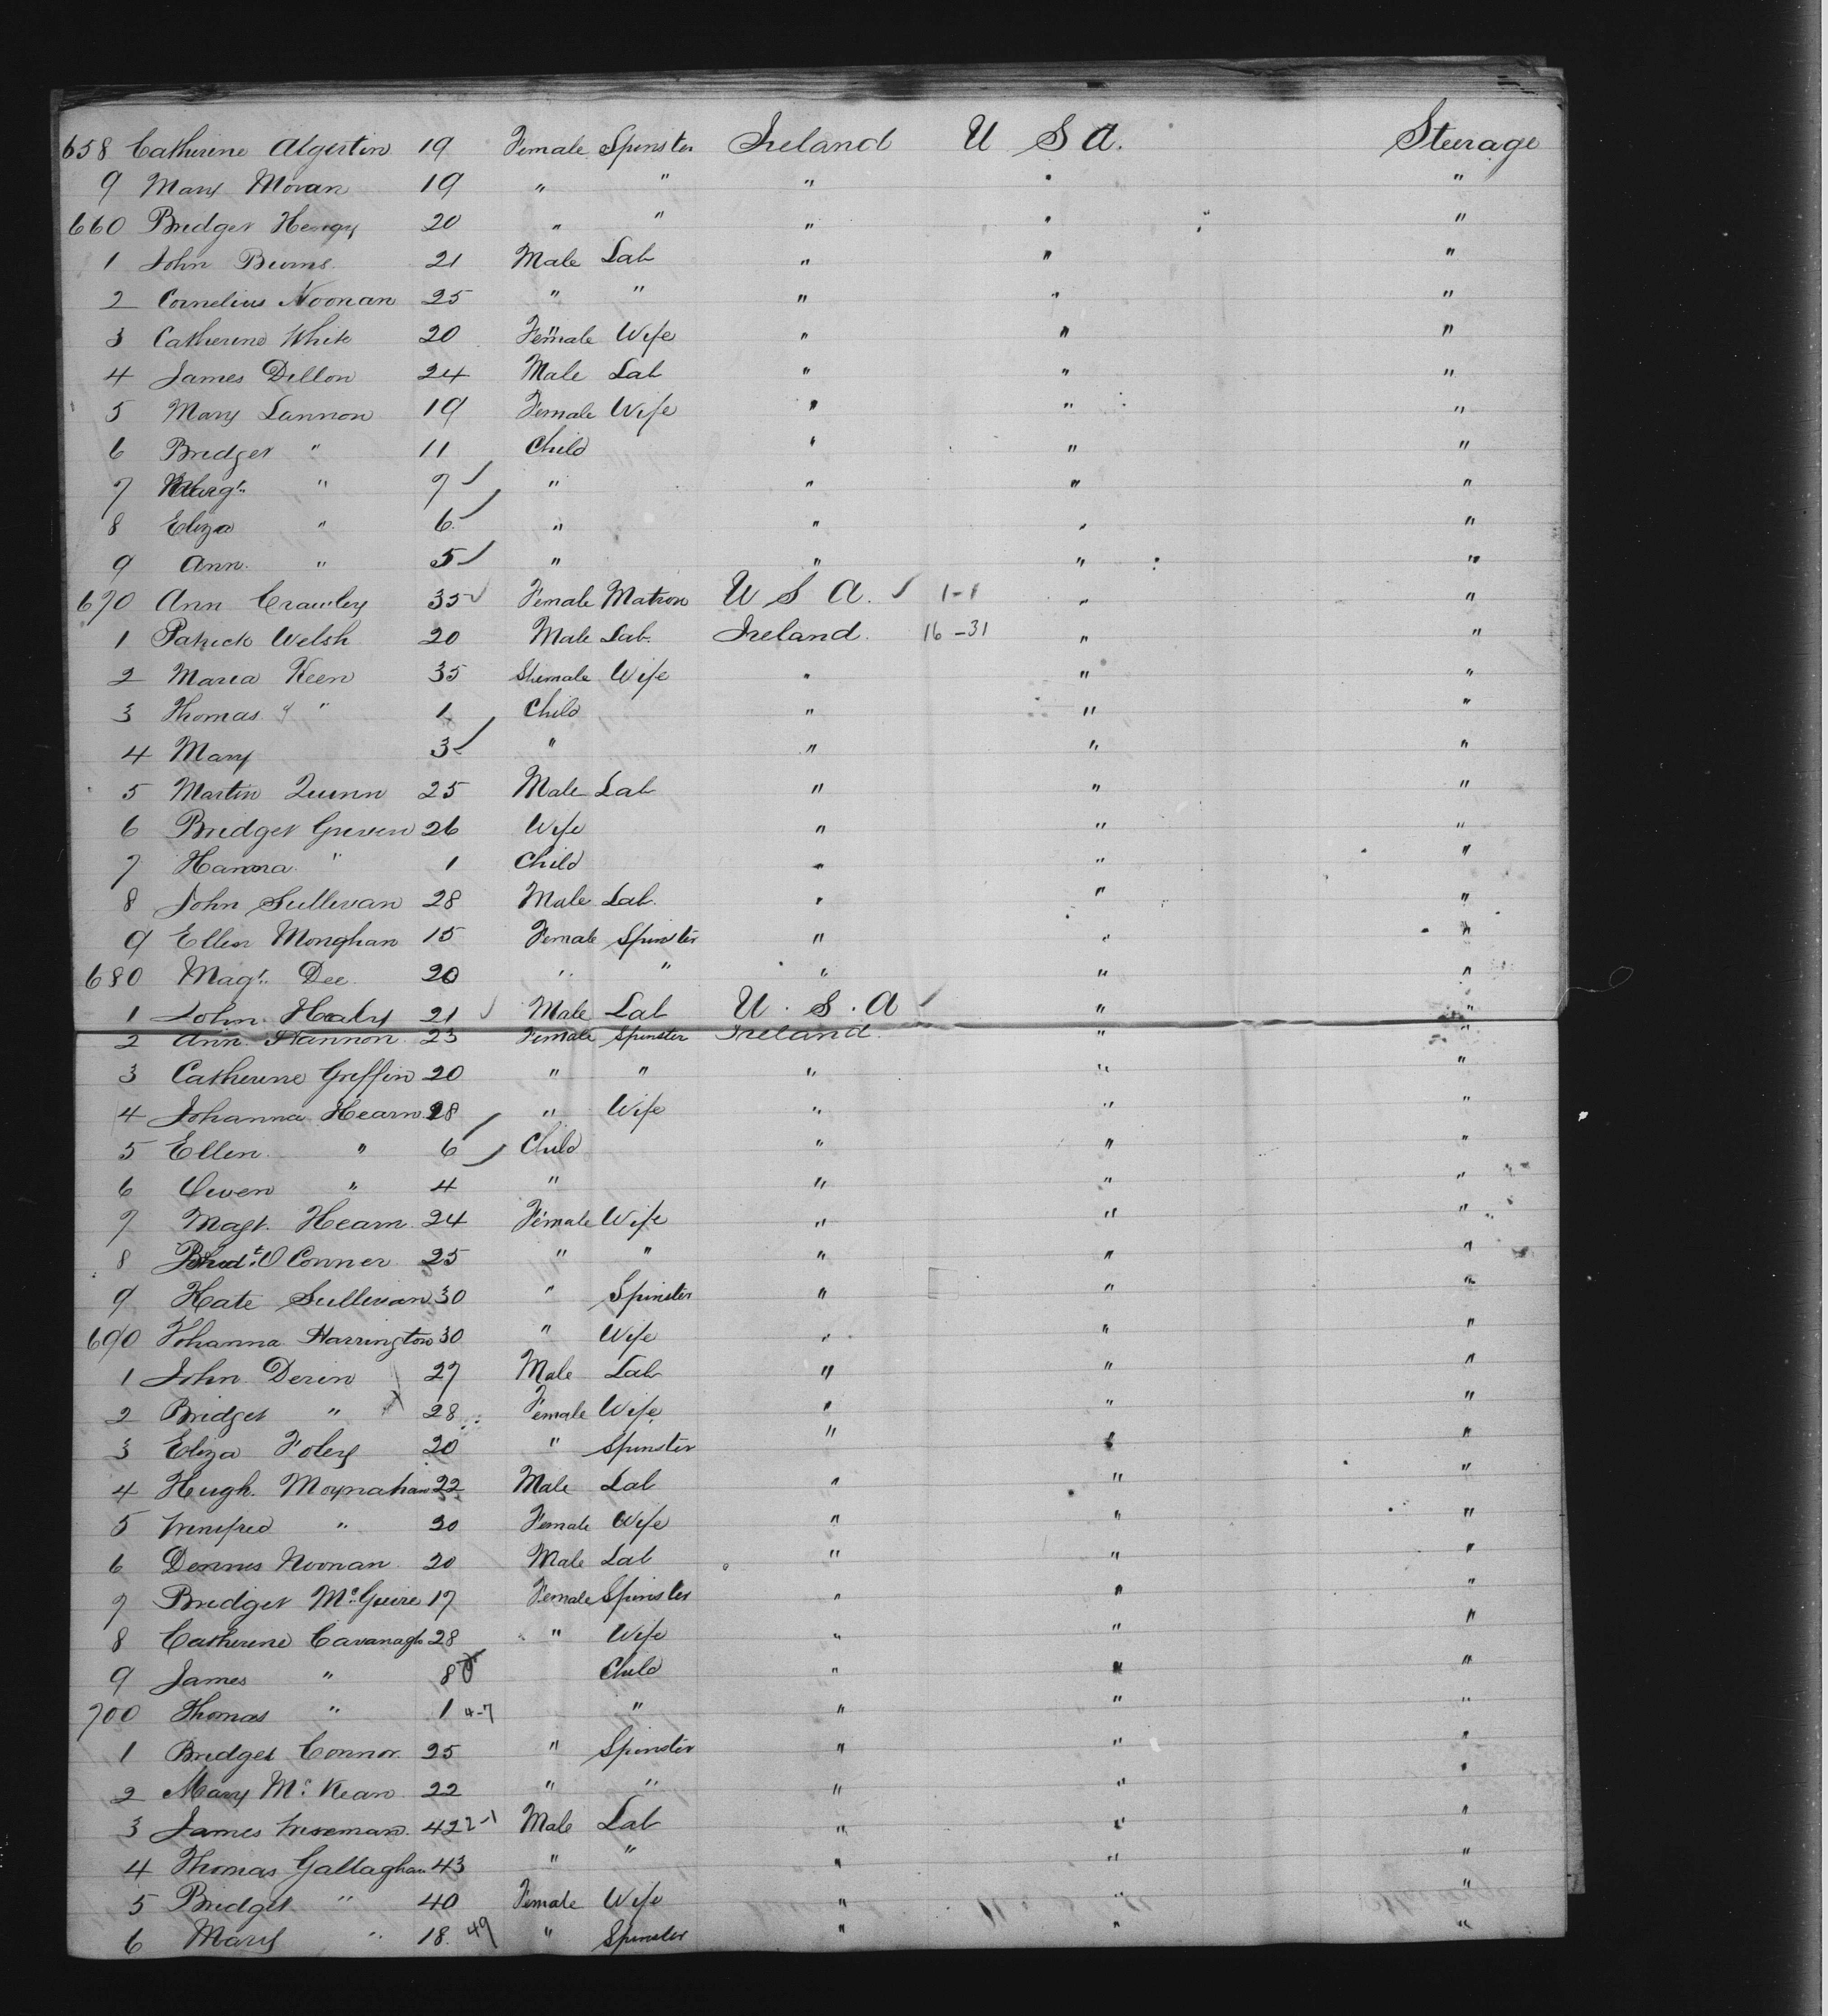 658 Catherine Algertin 19 Female Spinster Ireland U S A. Steerage
9 Mary Moran 19 " " " " "
660 Bridget 20 " " " " "
1 John Burns 21 Male Lab " " "
2 Cornelius Noonan 25 " " " " "
3 Catherine White 20 Female Wife " " "
4 James Dillon 24 Male Lab " " "
5 Mary Lannon 19 Female Wife " " "
6 Bridget " 11 Child " " "
7 Margt. " 7 " " " "
8 Eliza " 6 " " " "
9 Ann " 5 " " " "
670 Ann Crawley 35 Female Matron U S A. 1-1 " "
1 Patrick Welsh 20 Male Lab. Ireland. 16-31 " "
2 Maria Keen 35 Shemale Wife " " "
3 Thomas " 1 Child " " "
4 Mary 3 " " " "
5 Martin Quinn 25 Male Lab " " "
6 Bridget Greven 26 Wife " " "
7 Hanna " 1 Child " " "
8 John Sullivan 28 Male Lab. " " "
9 Ellen Monghan 15 Female Spinster " " "
680 Magt. Dee 20 " " " " "
1 John Healy 21 Male Lab U. S. A " "
2 Ann Hannon 23 Female Spinster Ireland. " "
3 Catherine Griffin 20 " " " " "
4 Johanna Hearn 28 " Wife " " "
5 Ellen " 6 Child " " "
6 Owen " 4 " " " "
7 Magt. Hearn 24 Female Wife " " "
8 Bridt. O Conner 25 " " " " "
9 Kate Sullivan 30 " Spinster " " "
690 Johanna Harrington 30 " Wife " " "
1 John Derin 27 Male Lab " " "
2 Bridget " 28 Female Wife " " "
3 Eliza Foley 20 " Spinster " " "
4 Hugh. Moynahan 22 Male Lab " " "
5 Winifred " 20 Female Wife " " "
6 Dennis Noonan 20 Male Lab " " "
7 Bridget McGuire 17 Female Spinster " " "
8 Catherine Cavanagh 28 " Wife " " "
9 James " 8 Child " " "
700 Thomas " 1 4-7 " " " "
1 Bridget Connor 25 " Spinster " " "
2 Mary Mc Kean 22 " " " " "
3 James Wiseman. 42 2-1 Male Lab " " "
4 Thomas Gallaghan 43 " " " " "
5 Bridget " 40 Female Wife " " "
6 Mary " 18. 49 " Spinster " " "